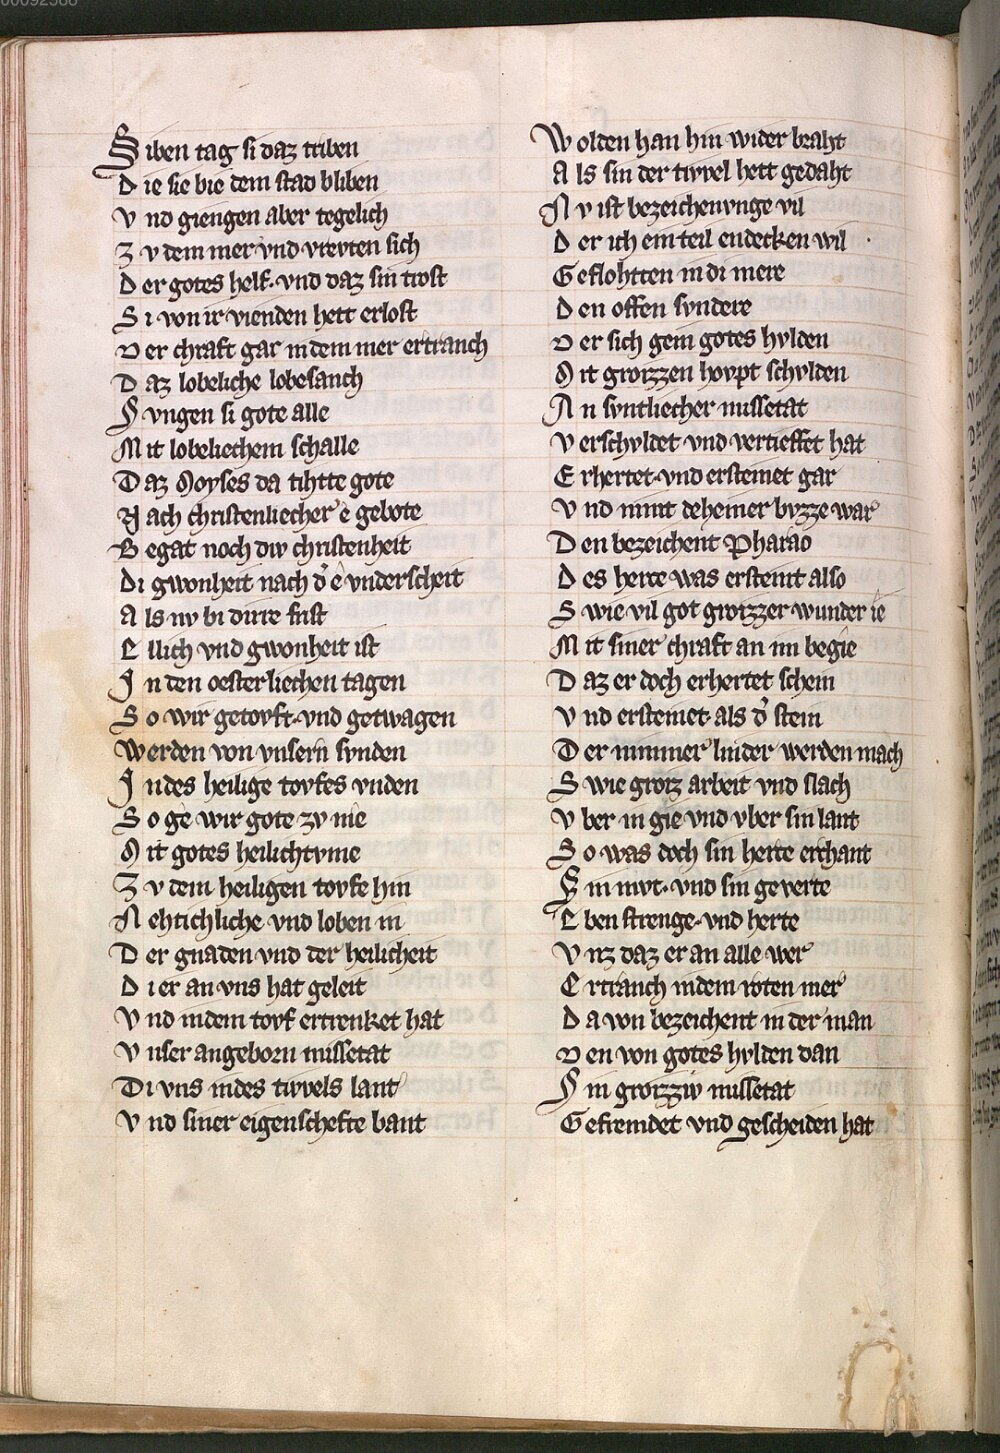 00092588
Siben tag si daz triben
Die sie bie dem stad bliben
Vnd giengen aber tegelich
Zv dem mer vnd vrevten sich
Der gotes helf· vnd daz sin trost
Si von ir vienden hett erlost
Der chraft gar in dem mer ertranch
Daz lobeliche lobesanch
Svngen si gote alle
Mit lobeliechem schalle
Daz Moyses da tihtte gote
Nach christenliecher e gebote
Begat noch div christenheit
Di gwonheit nach d̾ e vnderscheit
Als nv bi dirre frist
Ellich vnd gwonheit ist
In den oesterliechen tagen
So wir getovft· vnd getwagen
Werden von vnsern svnden
In des heilige tovfes vnden
So ge wir gote zv nie
Mit gotes heilichtvme
Zv dem heiligen tovfe hin
Nehtichliche vnd loben in
Der gnaden vnd der heilicheit
Di er an vns hat geleit
Vnd in dem tovf ertrenket hat
Vnser angeborn missetat
Di vns in des tivvels lant
Vnd siner eigenschefte bant
Wolden han hin wider braht
Als sin der tivvel hett gedaht
Nv ist bezeichenvnge vil
Der ich ein teil endecken wil
Geflohtten in di mere
Den offen svndere
Der sich gein gotes hvlden
Mit grozzen hovpt schvlden
An svntliecher missetat
Verschvldet vnd vertieffet hat
Erhertet· vnd ersteinet gar
Vnd nimt deheiner bvzze war
Den bezeichent Pharao
Des herce was ersteint also
Swie vil got grozzer wunder ie
Mit siner chraft an im begie
Daz er doch erhertet schein
Vnd ersteinet als d̾ stein
Der nimmer linder werden mach
Swie groz arbeit vnd slach
Vber in gie vnd vber sin lant
So was doch sin herce erchant
Sin mvt· vnd sin geverte
Eben strenge· vnd herte
Vnz daz er an alle wer
Ertranch in dem roten mer
Da von bezeichent in der man
Den von gotes hvlden dan
Sin grozziv missetat
Gefremdet vnd gescheiden hat